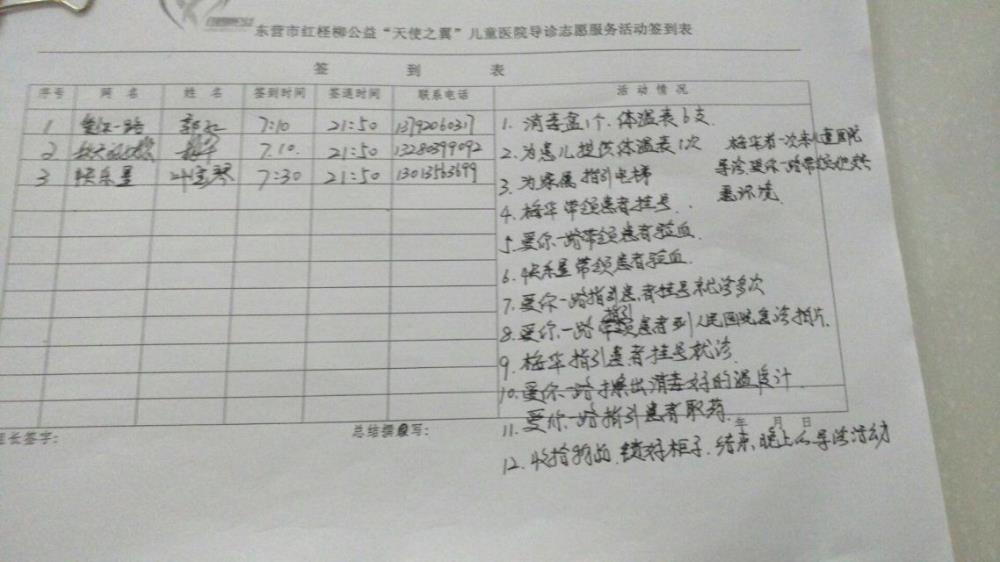 东营市红柽柳公益“天使之翼”儿童医院导诊志愿服务活动签到表
签 到 表
序号 网 名 姓 名 签到时间 签退时间 联系电话 活 动 情 况
1 爱你一路 郭红 7:10 21:50 13792060317
2 梅华 7.10. 21:50 13280399092
3 快乐星 7:30 21:50 13013563699
1. 消毒盒1个. 体温表6支.
2. 为患儿提供体温表1次
3. 为家属指引电梯
梅华者一次来儿童医院
导诊爱你一路带
悉环境.
4. 梅华带领患者挂号.
5. 爱你一路带领患者验血.
6. 快乐星带领患者验血.
7. 爱你一路指引患者挂号就诊多次
指引
8. 爱你一路带领患者到人民医院急诊拍片.
9. 梅华指引患者挂号就诊.
10. 爱你一路擦出消毒好的温度计.
11. 爱你一路指引患者取药.
年 月 日
12. 收拾物品. 锁好柜子. 结束晚上的导诊活动
长签字: 总结撰写: